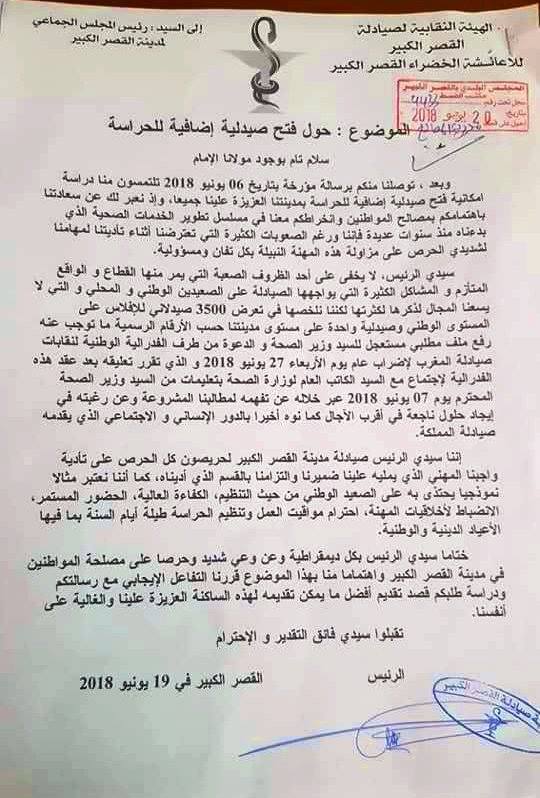 الهيئة النقابية لصيادلة
القصر الكبير
للاعائشة الخضراء القصر الكبير
إلى السيد : رئيس المجلس الجماعي
لمدينة القصر الكبير
المجلس البلدي بالقصر الكبير
مكتب الضبط
سجل تحت رقم 4433
بتاريخ 20 يونيو 2018
الموضوع : حول فتح صيدلية إضافية للحراسة
سلام تام بوجود مولانا الإمام
وبعد ، توصلنا منكم برسالة مؤرخة بتاريخ 06 يونيو 2018 تلتمسون منا دراسة
امكانية فتح صيدلية إضافية للحراسة بمدينتنا العزيزة علينا جميعا، وإذ نعبر لك عن سعادتنا
باهتمامكم بمصالح المواطنين وانخراطكم معنا في مسلسل تطوير الخدمات الصحية الذي
بدءناه منذ سنوات عديدة فإننا ورغم الصعوبات الكثيرة التي تعترضنا أثناء تأديتنا لمهامنا
لشديدي الحرص على مزاولة هذه المهنة النبيلة بكل تفان ومسؤولية.
سيدي الرئيس، لا يخفى على أحد الظروف الصعبة التي يمر منها القطاع و الواقع
المتأزم و المشاكل الكثيرة التي يواجهها الصيادلة على الصعيدين الوطني و المحلي و التي لا
يسعنا المجال لذكرها لكثرتها لكننا نلخصها في تعرض 3500 صيدلاني للإفلاس على
المستوى الوطني وصيدلية واحدة على مستوى مدينتنا حسب الأرقام الرسمية ما توجب عنه
رفع ملف مطلبي مستعجل للسيد وزير الصحة و الدعوة من طرف الفدرالية الوطنية لنقابات
صيادلة المغرب لإضراب عام يوم الأربعاء 27 يونيو 2018 و الذي تقرر تعليقه بعد عقد هذه
الفدرالية لإجتماع مع السيد الكاتب العام لوزارة الصحة بتعليمات من السيد وزير الصحة
المحترم يوم 07 يونيو 2018 عبر خلاله عن تفهمه لمطالبنا المشروعة وعن رغبته في
إيجاد حلول ناجعة في أقرب الآجال كما نوه أخيرا بالدور الإنساني و الاجتماعي الذي يقدمه
صيادلة المملكة.
إننا سيدي الرئيس صيادلة مدينة القصر الكبير لحريصون كل الحرص على تأدية
واجبنا المهني الذي يمليه علينا ضميرنا والتزامنا بالقسم الذي أديناه، كما أننا نعتبر مثالا
نموذجيا يحتذى به على الصعيد الوطني من حيث التنظيم، الكفاءة العالية، الحضور المستمر،
الانضباط لأخلاقيات المهنة، احترام مواقيت العمل وتنظيم الحراسة طيلة أيام السنة بما فيها
الأعياد الدينية والوطنية.
ختاما سيدي الرئيس بكل ديمقراطية وعن وعي شديد وحرصا على مصلحة المواطنين
في مدينة القصر الكبير واهتماما منا بهذا الموضوع قررنا التفاعل الإيجابي مع رسالتكم
ودراسة طلبكم قصد تقديم أفضل ما يمكن تقديمه لهذه الساكنة العزيزة علينا والغالية على
أنفسنا.
تقبلوا سيدي فائق التقدير و الإحترام
الرئيس
القصر الكبير في 19 يونيو 2018
صيادلة القصر الكبير